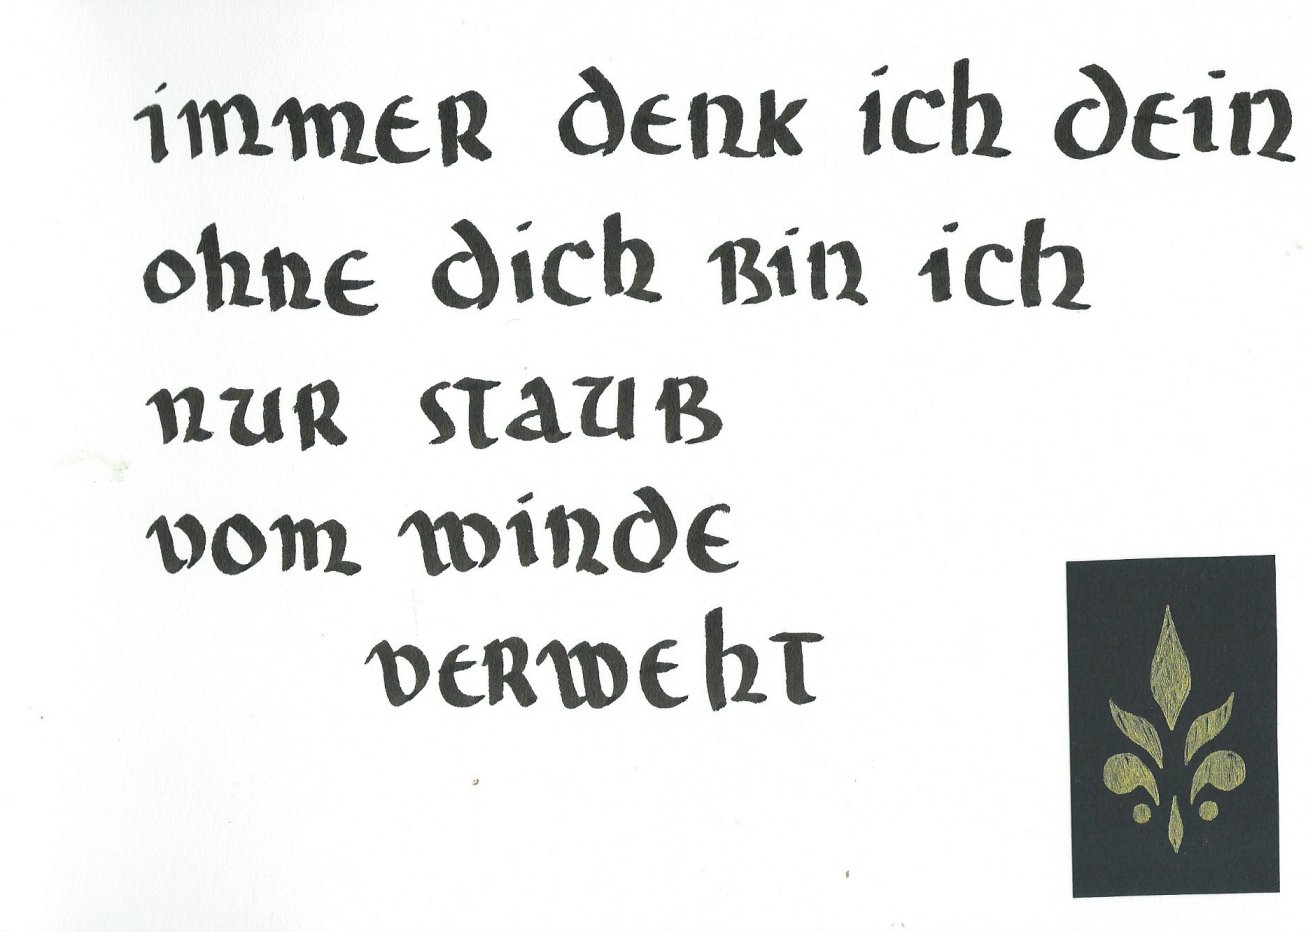 immer denk ich dein
ohne dich bin ich
nur staub
vom winde
verweht